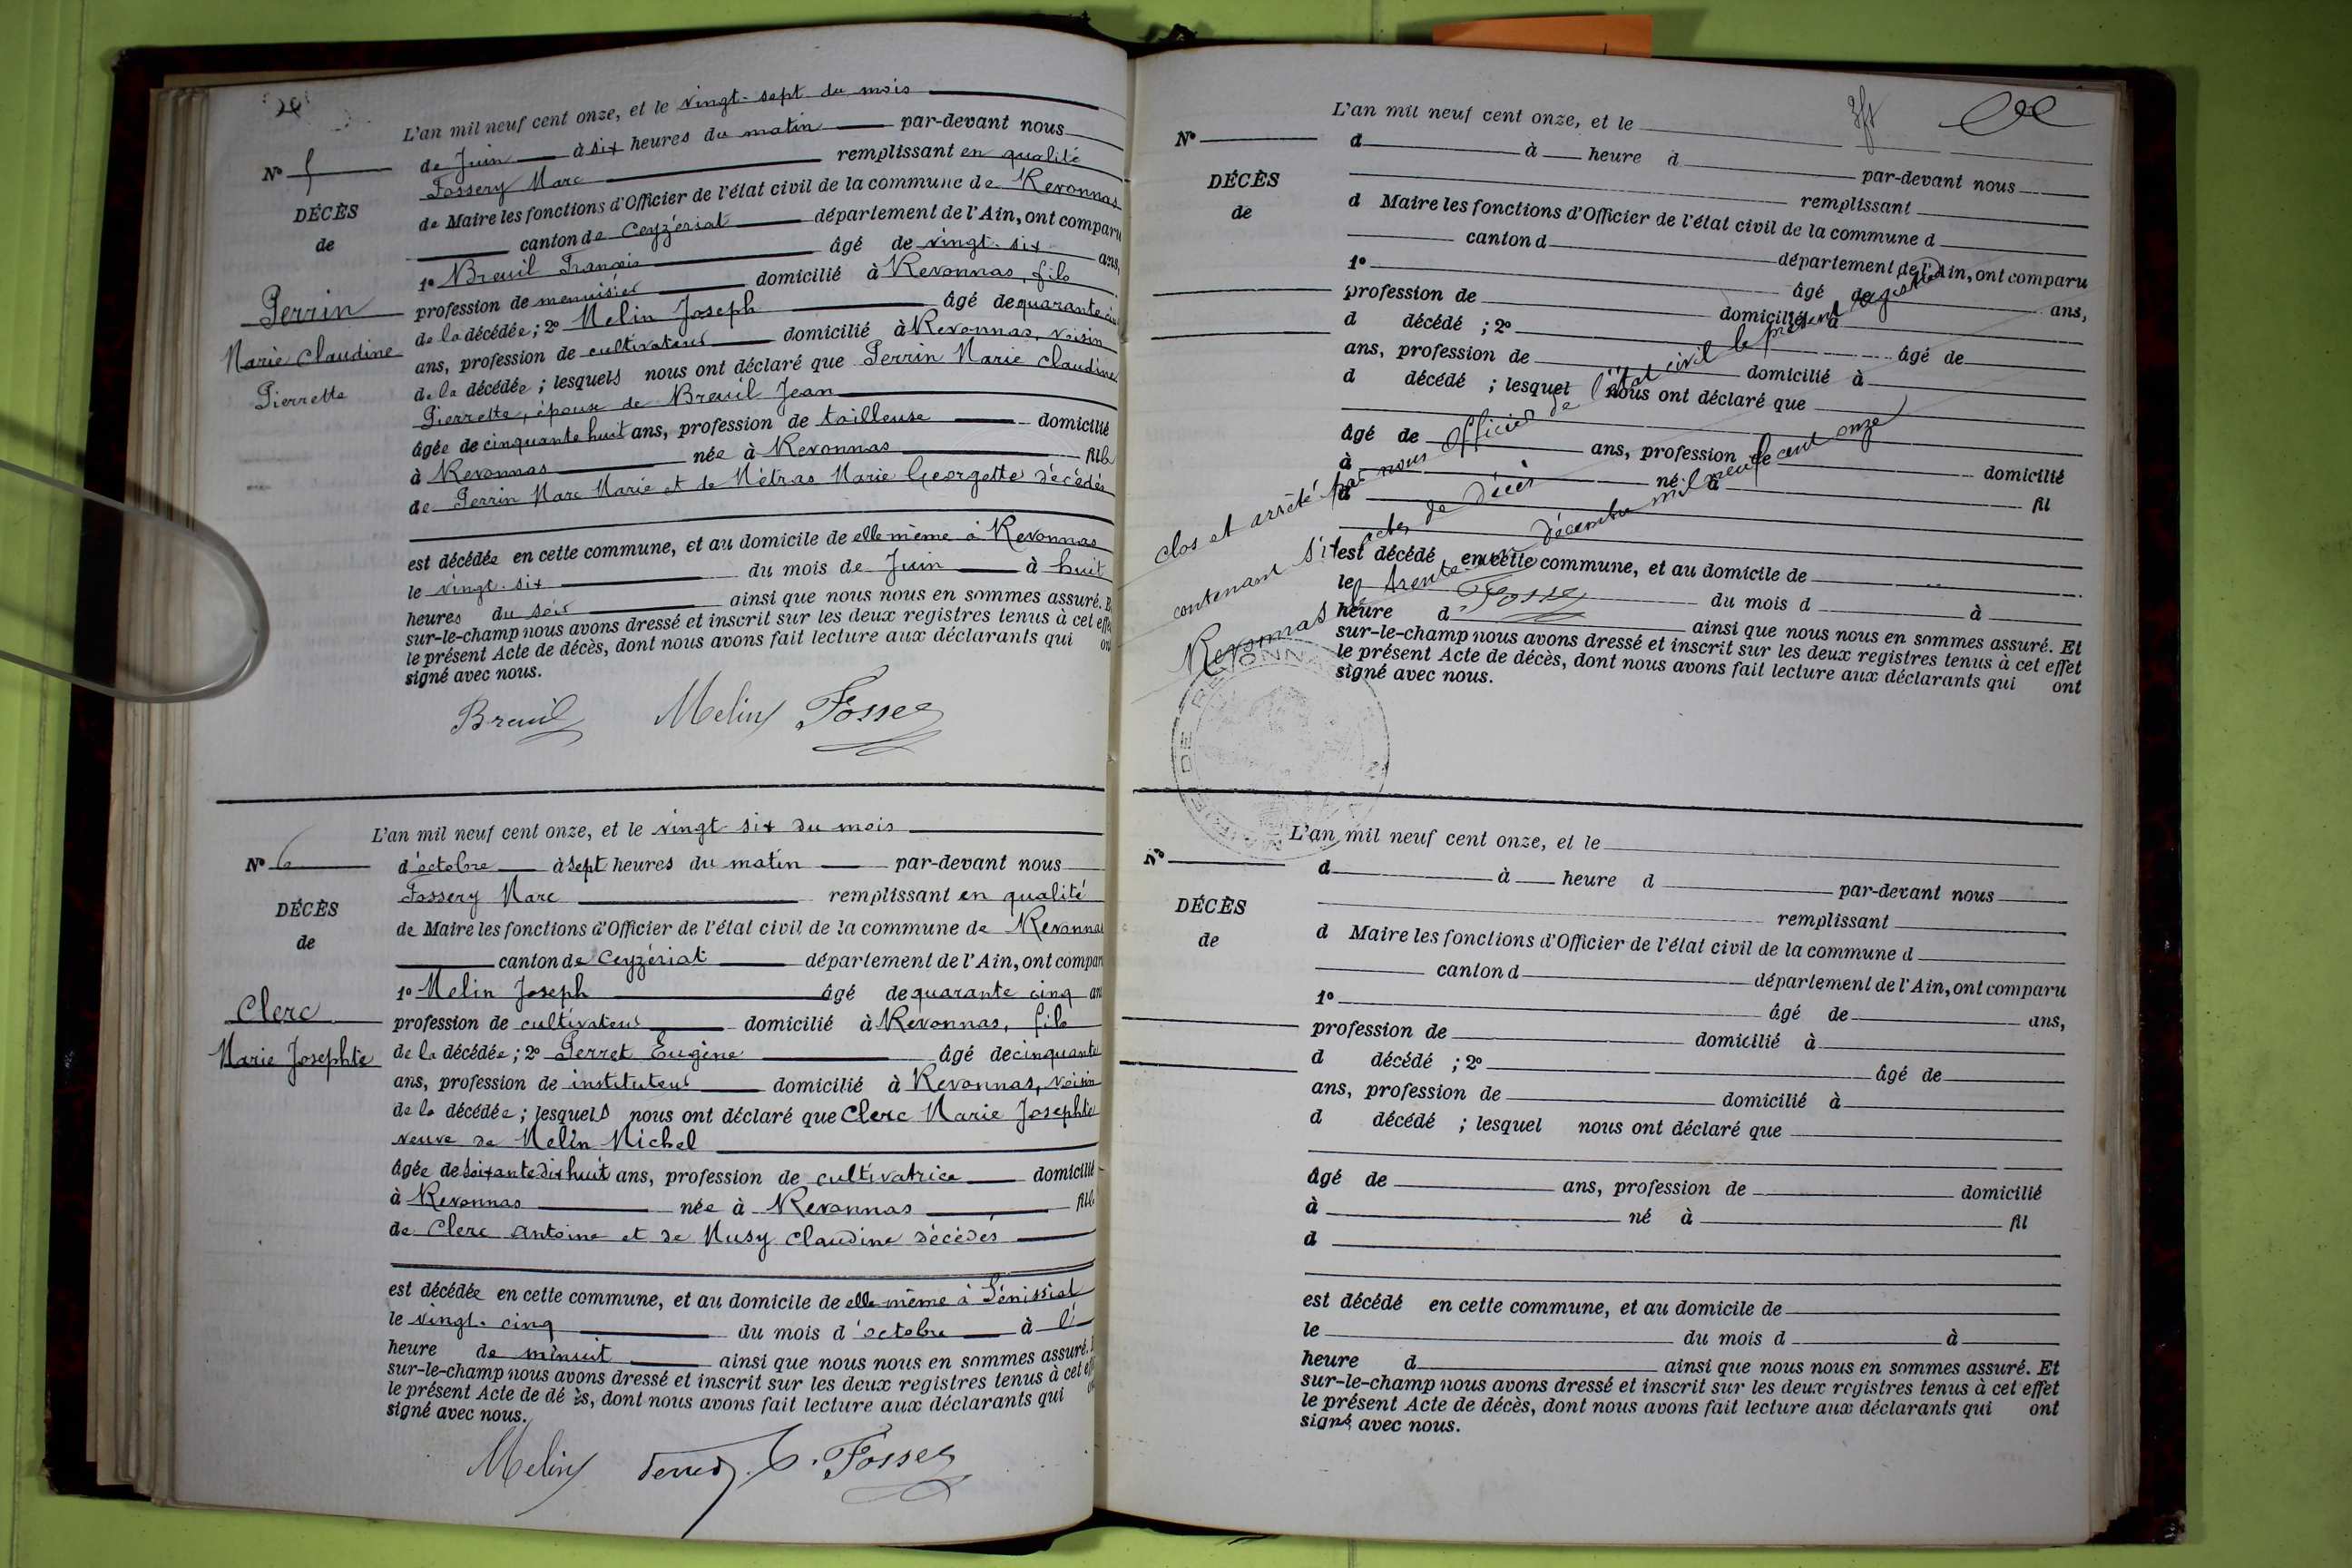 L'an mil neuf cent onze, et le vingt-sept du mois
N° 5
de Juin à six heures du matin par-devant nous
Fossery Marc remplissant en qualité
DÉCÈS
de
de Maire les fonctions d'Officier de l'état civil de la commune de Revonnas
canton de Ceyzériat département de l'Ain, ont comparu
1° Breuil François âgé de vingt-six ans,
profession de menuisier domicilié à Revonnas, fils
Perrin
Marie Claudine
Pierrette
de la décédée; 2° Melin Joseph âgé de quarante
ans, profession de cultivateur domicilié à Revonnas, voisin
de la décédée; lesquels nous ont déclaré que Perrin Marie Claudine
Pierrette, épouse de Breuil Jean
âgée de cinquante huit ans, profession de tailleuse domicilié
à Revonnas née à Revonnas fille
de Perrin Marc Marie et de Métras Marie Georgette décédés
est décédée en cette commune, et au domicile de elle même à Revonnas
le vingt-six du mois de Juin à huit
heures du soir ainsi que nous nous en sommes assuré. E
sur-le-champ nous avons dressé et inscrit sur les deux registres tenus à cet effe
le présent Acte de décès, dont nous avons fait lecture aux déclarants qui on
signé avec nous.
Breuil Melin Fossery
L'an mil neuf cent onze, et le vingt-six du mois
N° 6
d'octobre à sept heures du matin par-devant nous
Fossery Marc remplissant en qualité
DÉCÈS
de
de Maire les fonctions d'Officier de l'état civil de la commune de Revonnas
canton de Ceyzériat département de l'Ain, ont compar
1° Melin Joseph âgé de quarante cinq an
profession de cultivateur domicilié à Revonnas, fils
Clerc
Marie Josephte
de la décédée; 2° Perret Eugène âgé de cinquante
ans, profession de instituteur domicilié à Revonnas, voisin
de la décédée; lesquels nous ont déclaré que Clerc Marie Josephte
veuve de Melin Michel
âgée de soixante dix huit ans, profession de cultivatrice domicilié
à Revonnas née à Revonnas fille
de Clerc Antoine et de Musy Claudine décédés
est décédée en cette commune, et au domicile de elle même à Sénissiat
le vingt-cinq du mois d'octobre à l'
heure de minuit ainsi que nous nous en sommes assuré.
sur-le-champ nous avons dressé et inscrit sur les deux registres tenus à cet eff
le présent Acte de dé ès, dont nous avons fait lecture aux déclarants qui
signé avec nous.
Melin Perret E. Fossery
L'an mil neuf cent onze, et le
N°
d à heure d par-devant nous
remplissant
DÉCÈS
de
d Maire les fonctions d'Officier de l'état civil de la commune d
canton d département de l'Ain, ont comparu
1° âgé de ans,
profession de domicilié à
d décédé ; 2° âgé de
ans, profession de domicilié à
d décédé ; lesquel nous ont déclaré que
âgé de ans, profession de domicilié
à né à fil
d
est décédé en cette commune, et au domicile de
le du mois d à
heure d ainsi que nous nous en sommes assuré. Et
sur-le-champ nous avons dressé et inscrit sur les deux registres tenus à cet effet
le présent Acte de décès, dont nous avons fait lecture aux déclarants qui ont
signé avec nous.
clos et arrêté par nous Officier de l'état civil le présent registre
contenant six actes de décès
Revonnas le trente-un décembre mil neuf cent onze
Fossery
L'an mil neuf cent onze, et le
N°
d à heure d par-devant nous
remplissant
DÉCÈS
de
d Maire les fonctions d'Officier de l'état civil de la commune d
canton d département de l'Ain, ont comparu
1° âgé de ans,
profession de domicilié à
d décédé ; 2° âgé de
ans, profession de domicilié à
d décédé ; lesquel nous ont déclaré que
âgé de ans, profession de domicilié
à né à fil
d
est décédé en cette commune, et au domicile de
le du mois d à
heure d ainsi que nous nous en sommes assuré. Et
sur-le-champ nous avons dressé et inscrit sur les deux registres tenus à cet effet
le présent Acte de décès, dont nous avons fait lecture aux déclarants qui ont
signé avec nous.